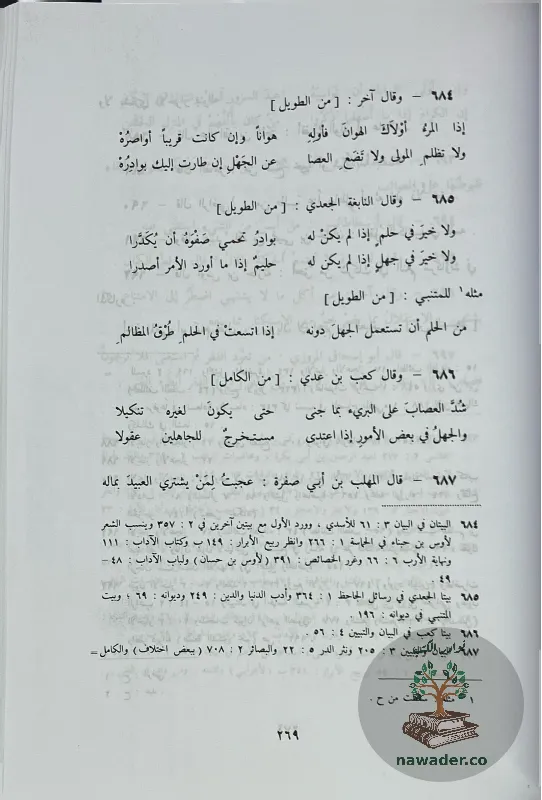 ٦٨٤ – وقال آخر : [ من الطويل ]
إذا المرءُ أوْلاَكَ الهوانَ فأولِهِ هواناً وإن كانت قريباً أواصرُهْ
ولا تظلمِ المولى ولا تَضَعِ العصا عن الجَهْلِ إن طارت إليك بوادِرُهْ
٦٨٥ – وقال النابغة الجعدي : [ من الطويل ]
ولا خيرَ في حلمٍ إذا لم يكنْ له بوادرُ تحمي صَفْوَهُ أن يُكَدَّرا
ولا خيرَ في جهلٍ إذا لم يكن له حليمٌ إذا ما أورد الأمر أصدرا
مثله١ للمتنبي : [ من الطويل ]
من الحلم أن تستعمل الجهلَ دونه إذا اتسعتْ في الحلمِ طُرْقُ المظالمِ
٦٨٦ – وقال كعب بن عدي : [ من الكامل ]
شُدَّ العصابَ على البريء بما جنى حتى يكونَ لغيره تنكيلا
والجهلُ في بعض الأمورِ إذا اعتدى مستخرجٌ للجاهلين عقولا
٦٨٧ – قال المهلب بن أبي صفرة : عجبتُ لِمَنْ يشتري العبيدَ بماله
٦٨٤ البيتان في البيان ٣ : ٦١ للأسدي ، وورد الأول مع بيتين آخرين في ٢ : ٣٥٧ وينسب الشعر
لأوس بن حبناء في الحماسة ١ : ٢٦٦ وانظر ربيع الأبرار : ١٤٩ ب وكتاب الآداب : ١١١
ونهاية الأرب ٦ : ٦٦ وغرر الخصائص : ٣٩١ (لأوس بن حسان) ولباب الآداب : ٤٨ –
٤٩ .
٦٨٥ بيتا الجعدي في رسائل الجاحظ ١ : ٣٦٤ وأدب الدنيا والدين : ٢٤٩ وديوانه : ٦٩ ؛ وبيت
المتنبي في ديوانه : ١٩٦ .
٦٨٦ بيتا كعب في البيان والتبيين ٤ : ٥٦ .
٦٨٧ البيان والتبيين ٣ : ٢٠٥ ونثر الدر ٥ : ٢٢ والبصائر ٢ : ٧٠٨ (ببعض اختلاف) والكامل =
١ من ح .
٢٦٩
nawader.co